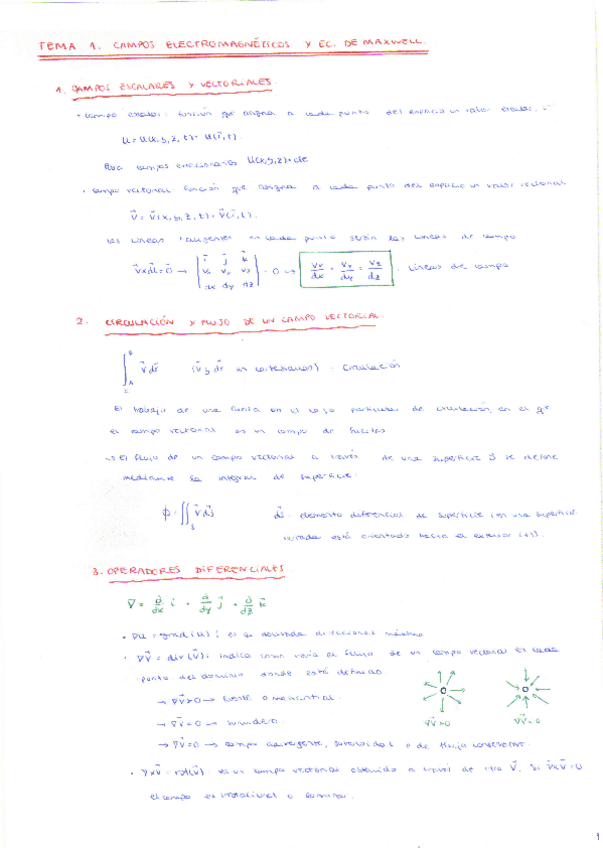 TEMA 1. CAMPOS ELECTROMAGNÉTICOS Y EC. DE MAXWELL.
1. CAMPOS ESCALARES Y VECTORIALES.
• campo escalar: función que asigna a cada punto del espacio un valor escalar,
U = U(x,y,z,t) = U(r⃗,t).
Para campos estacionarios U(x,y,z) = cte
• campo vectorial: función que asigna a cada punto del espacio un valor vectorial
V⃗ = V⃗(x,y,z,t) = V⃗(r⃗,t).
Las líneas tangentes en cada punto serán las líneas de campo
V⃗ x dl⃗ = 0 → | i⃗ j⃗ k⃗ | Vx Vy Vz | dx dy dz | = 0 → Vx/dx = Vy/dy = Vz/dz . Líneas de campo
2. CIRCULACIÓN Y FLUJO DE UN CAMPO VECTORIAL.
∫ V⃗ dr⃗ (V⃗ y dr⃗ en cartesianas) - Circulación
El trabajo de una fuerza es el caso particular de circulación, en el que
el campo vectorial es un campo de fuerzas
→ El flujo de un campo vectorial a través de una superficie S se define
mediante la integral de superficie:
ϕ = ∬ V⃗ ds⃗ ds⃗: elemento diferencial de superficie (en una superficie
cerrada está orientado hacia el exterior (+)).
3. OPERADORES DIFERENCIALES
∇ = ∂/∂x i + ∂/∂y j⃗ + ∂/∂z k⃗
• ∇U = grad(U): es la derivada direccional máxima
• ∇V⃗ = div(V⃗): indica como varía el flujo de un campo vectorial en cada
punto del dominio donde está definido.
→ ∇V⃗ > 0 → fuente o manantial.
→ ∇V⃗ < 0 → sumidero.
∇V⃗ > 0 ∇V⃗ < 0
→ ∇V⃗ = 0 → campo solenoidal o de flujo conservativo.
• ∇xV⃗ = rot(V⃗) es un campo vectorial obtenido a través de otro V⃗. Si ∇xV⃗ = 0
el campo es irrotacional o
1